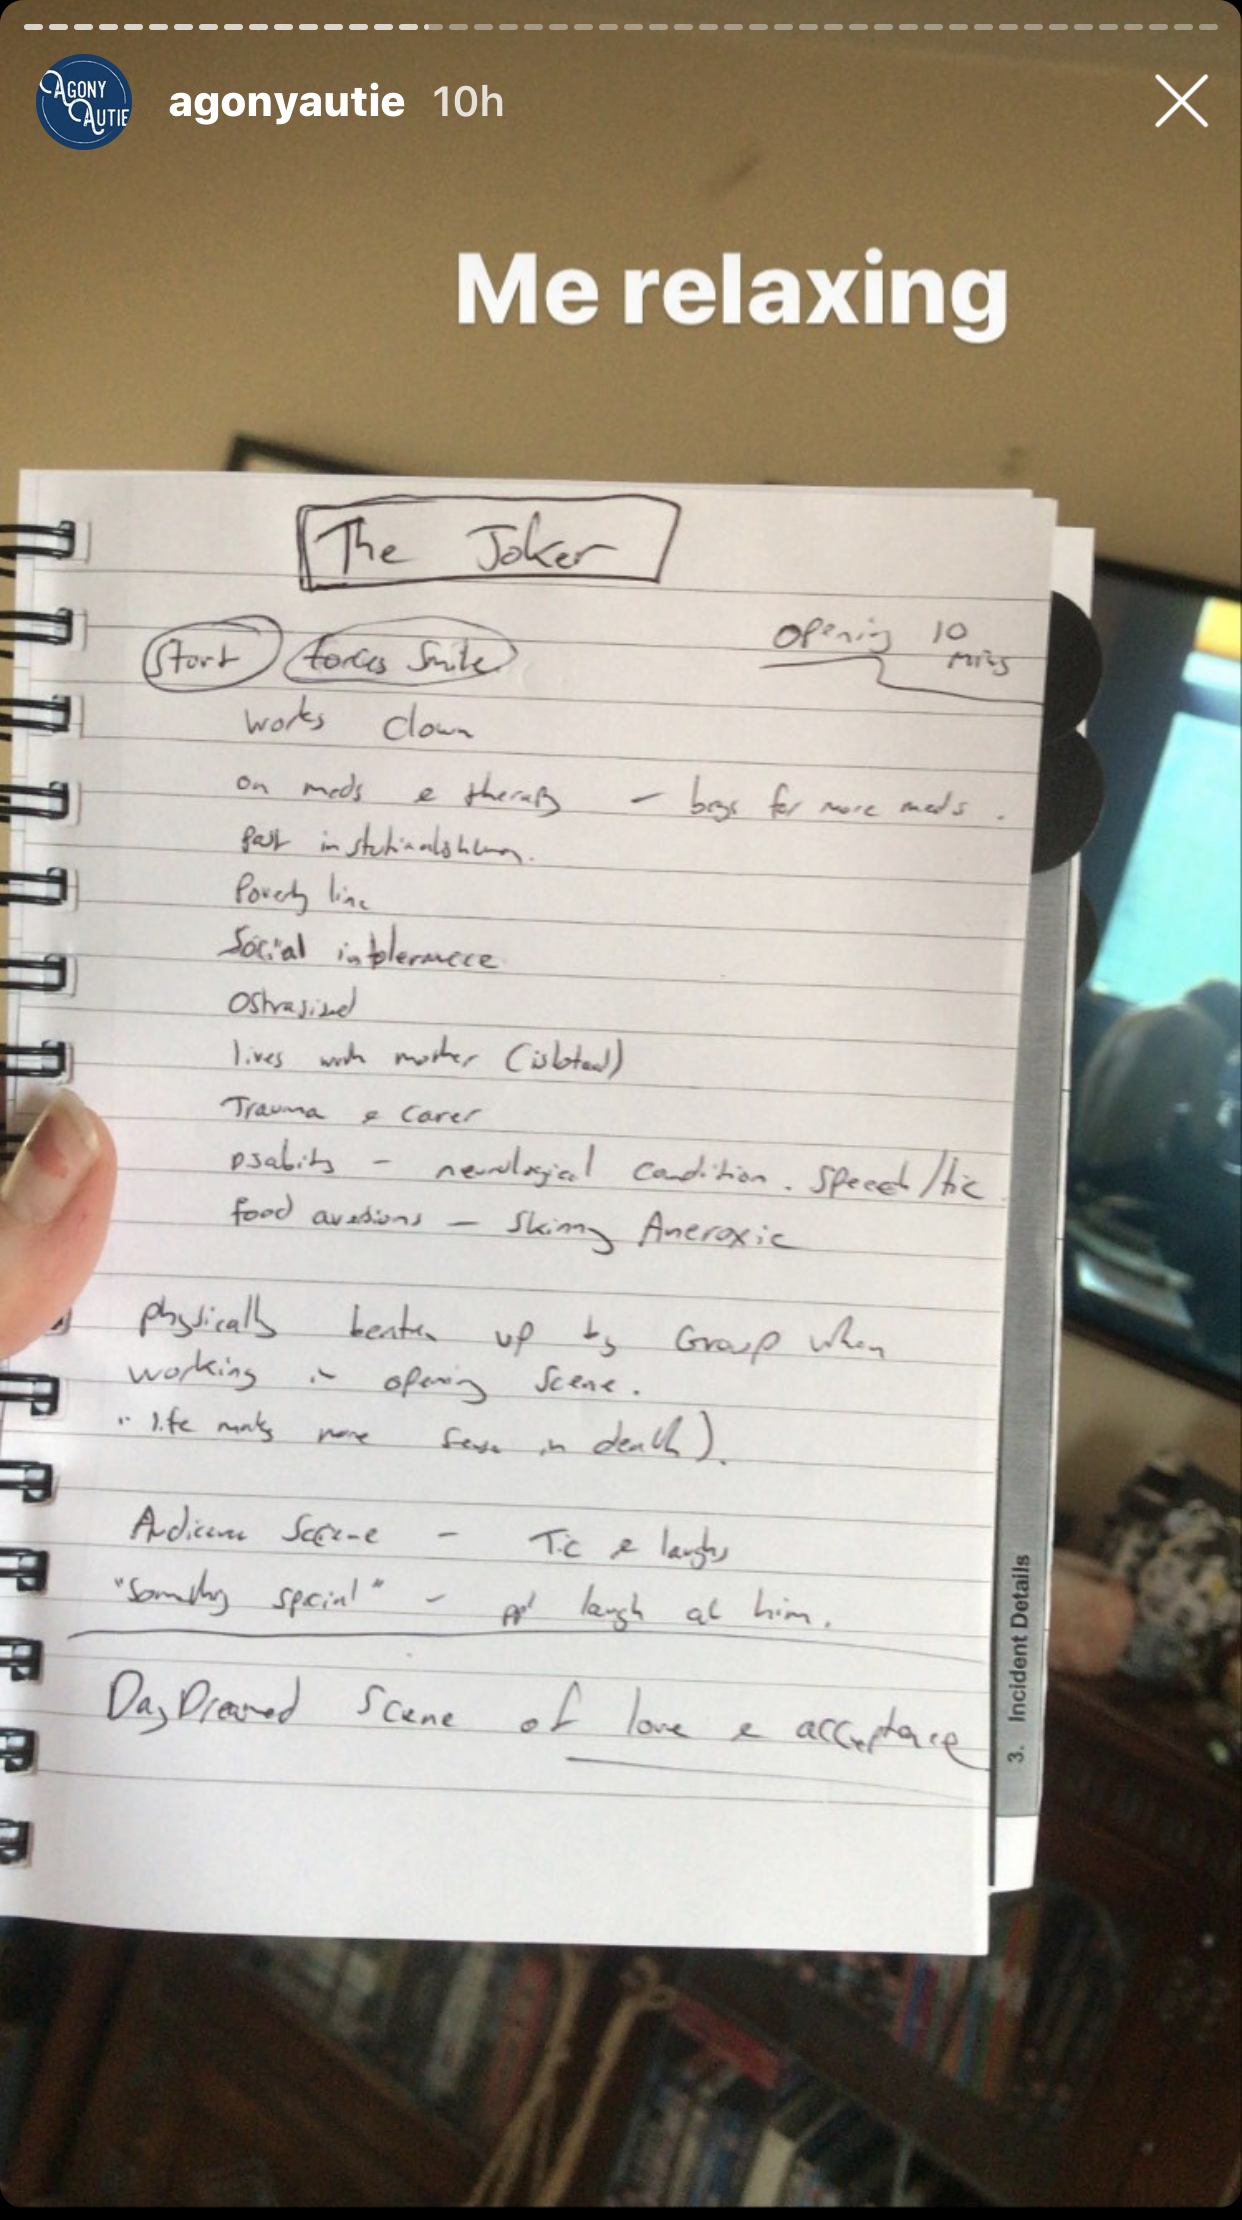 AGONY
AUTIE
agonyautie 10h
Me relaxing
The Joker
Start forces Smile
opening 10
mins
works clown
on meds & therapy - begs for more meds.
Past
Poverty line
Social intolerance
Ostrasized
lives with mother (isloted)
Trauma & carer
Disability - neurological condition. Speech/tic
food aversions - Skinny Aneroxic
physically beaten up by Group when
working in opening scene.
"life makes more sense in death).
Audience Scene - Tic & laughs
"Something special" - ppl laugh at him.
DayDreamed Scene of love & acceptance
3. Incident Details